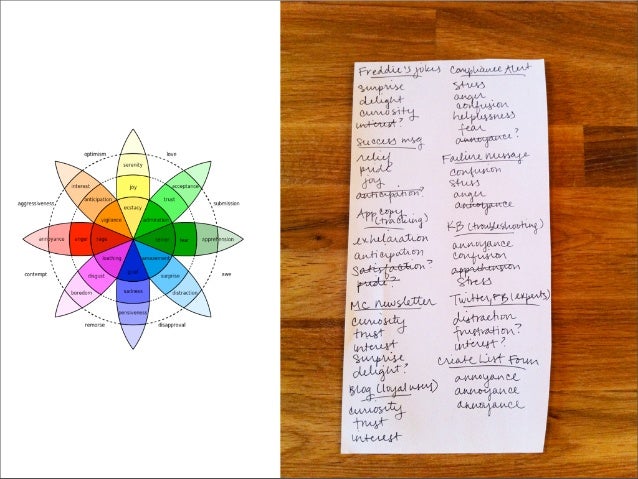 optimism
love
serenity
interest
joy
acceptance
anticipation
trust
aggressiveness
submission
ecstacy
vigilance
admiration
annoyance
anger
rage
terror
fear
apprehension
loathing
amazement
contempt
grief
awe
disgust
surprise
boredom
sadness
distraction
pensiveness
remorse
disapproval
Freddie's jokes
surprise
delight
curiosity
interest?
Success msg
relief
pride
joy
anticipation?
App copy
(tracking)
exhilaration
anticipation
satisfaction?
pride?
MC Newsletter
curiosity
trust
interest
surprise
delight?
Blog (loyal users)
curiosity
trust
interest
Compliance Alert
stress
anger
confusion
helplessness
fear
annoyance?
Failure message
confusion
stress
anger
annoyance
KB (troubleshooting)
annoyance
confusion
apprehension
stress
Twitter, FB (experts)
distraction
frustration?
interest?
Create List Form
annoyance
annoyance
annoyance